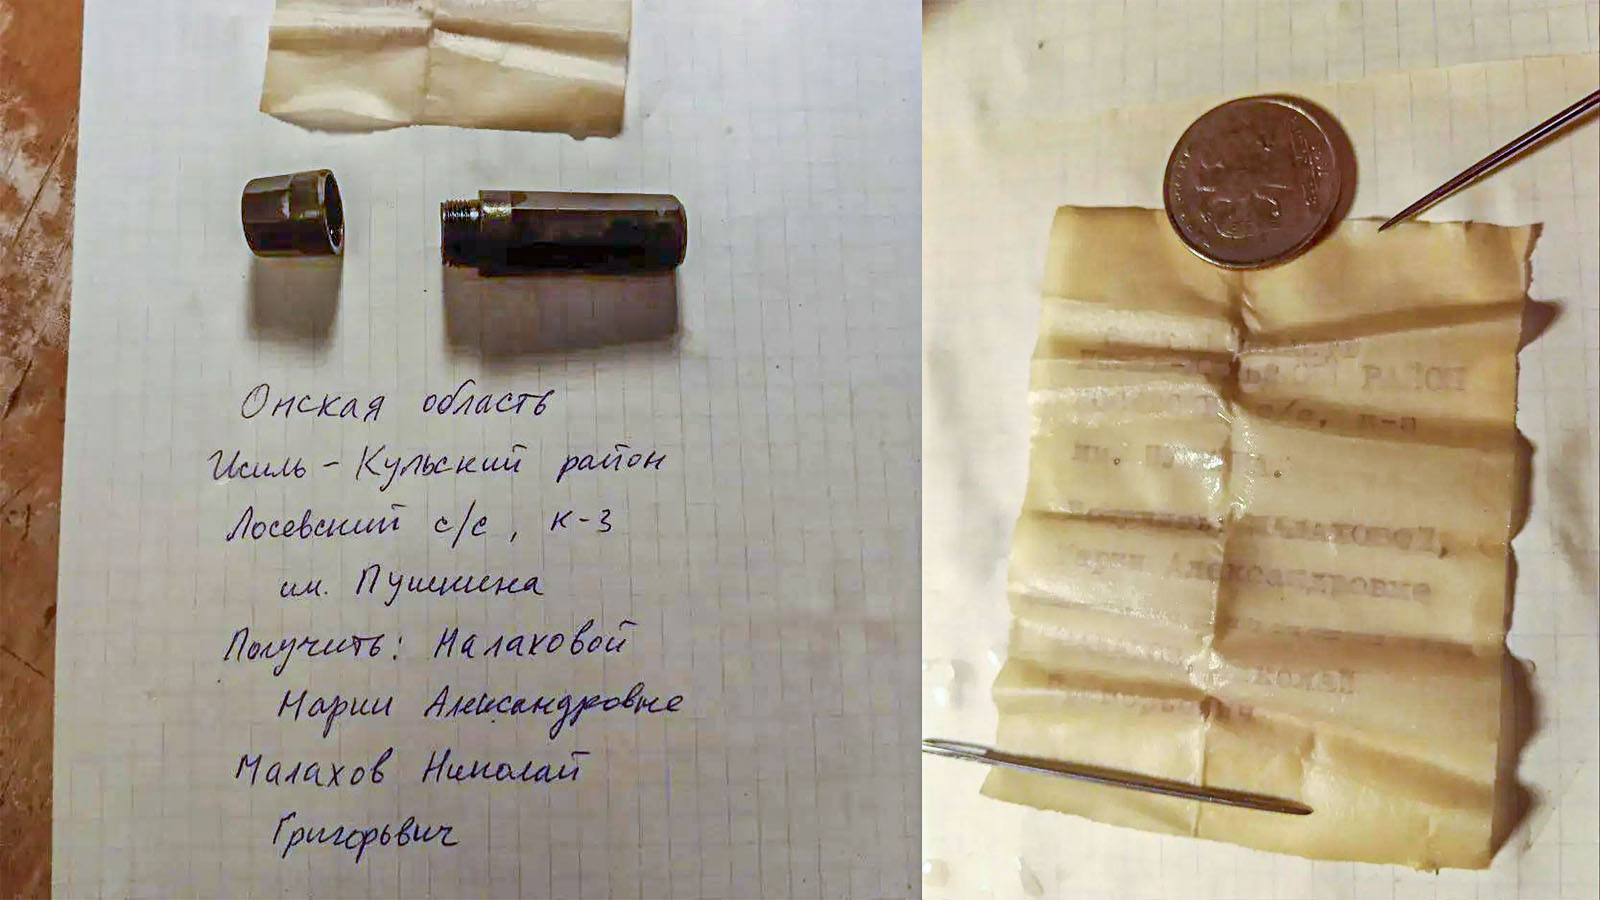 Омская область
Исиль-Кульский район
Лосевский с/с, к-з
им. Пушкина
Получить: Малаховой
Марии Александровне
Малахов Николай
Григорьвич
РАЙОН
с/с, к-з
им.
Марии Александровне